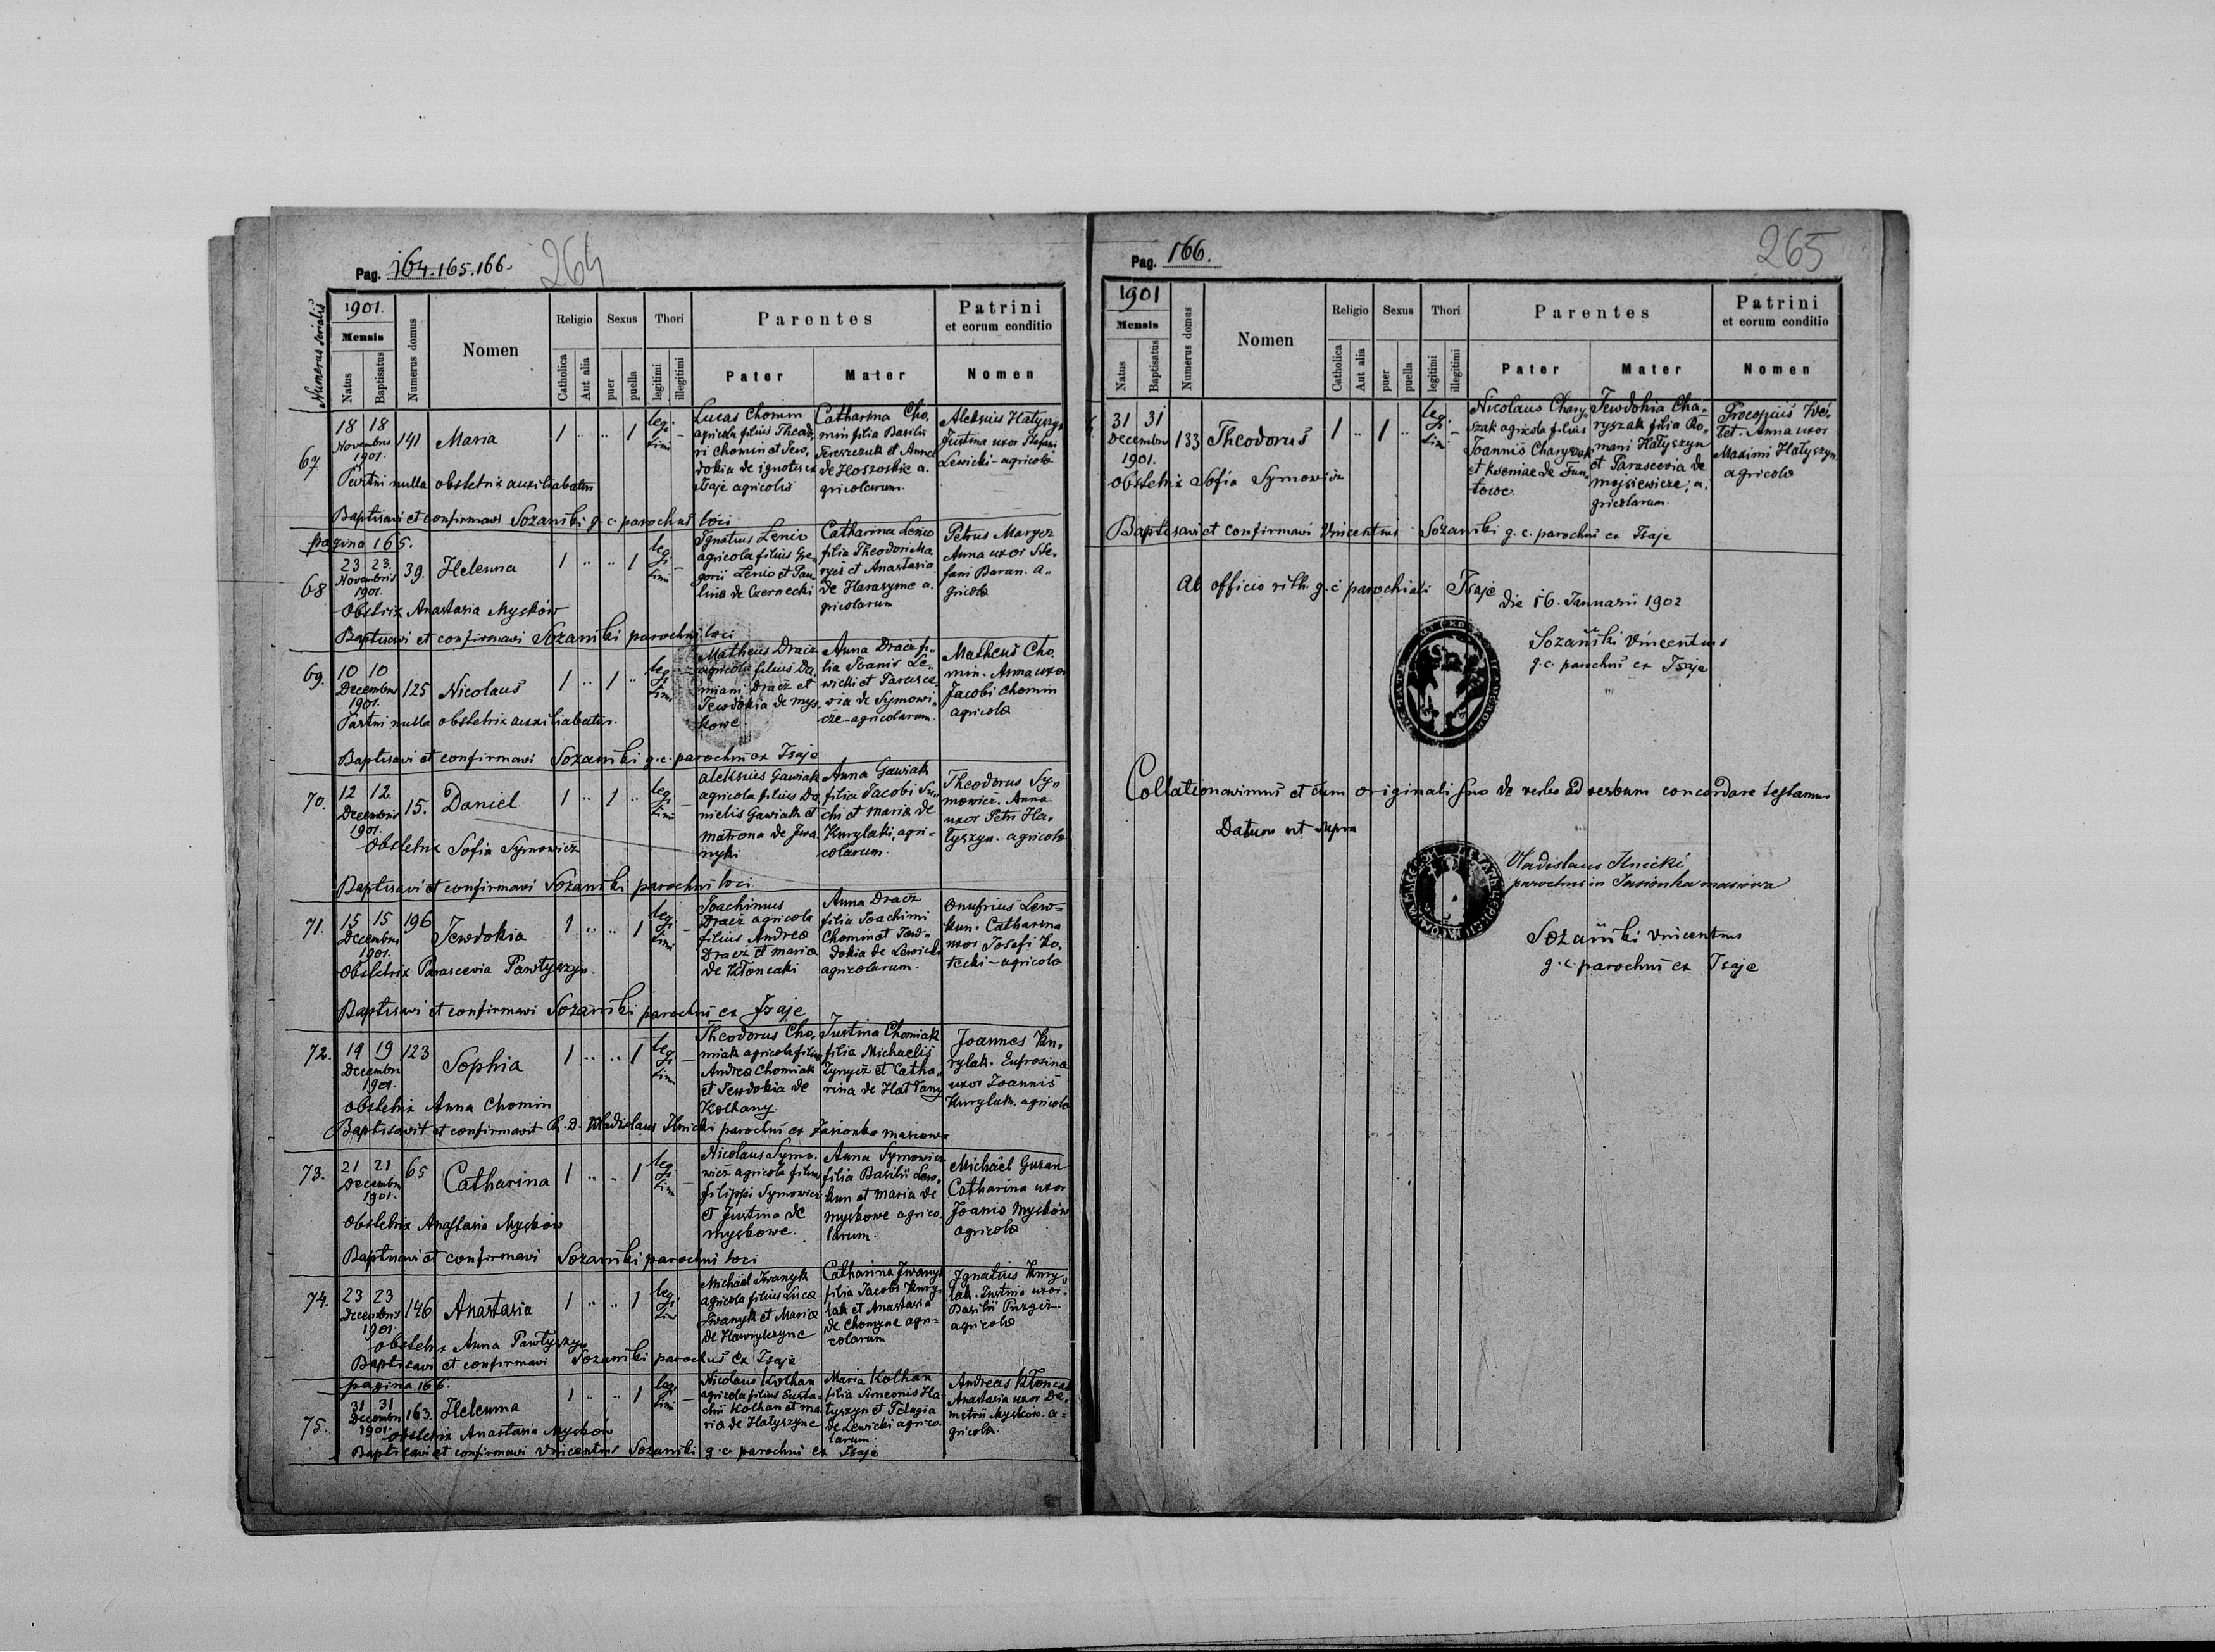 Pag. 164.165.166.
264
Numerus serialis
1901.
Mensis
Natus
Baptisatus
Numerus domus
Nomen
Religio
Catholica
Aut alia
Sexus
puer
puella
Thori
legitimi
illegitimi
Parentes
Pater
Mater
Patrini
et eorum conditio
Nomen
67.
18 18
Novembris
1901.
141
Maria
1 .. .. 1
legi
timi
Lucas Chomin
agricola filius Theodo
ri Chomin et Jew,
dokia de ignotis ex
Isaje agricolis
Catharina Cho,
min filia Basilii
Tereszczuk et Anna
de Hoszoskie a.
gricolarum.
Aleksius Hatyszyn
Justina uxor Stefani
Lewicki - agricolæ
Partui nulla obstetrix auxiliabatur
Baptisavi et confirmavi Sozański g. c. parochus loci
pagina 165.
68
23 23.
Novembris
1901.
39.
Helenna
1 .. .. 1
legi
timi
Ignatius Lenio
agricola filius Gre,
gorii Lenio et Pau
lina de Czernecki
Catharina Lenio
filia Theodori Ma
rycz et Anastasia
de Harasyme a.
gricolarum
Petrus Marycz
Anna uxor Ste,
fani Baran. a,
gricolæ
Obstetrix Anastasia Mysków
Baptisavi et confirmavi Sozański parochus loci
69.
10 10
Decembris
1901.
125
Nicolaus
1 .. 1 ..
legi
timi
Matheus Dracz
agricola filius Da,
miani Dracz et
Jewdokia de Mys,
kowe
Anna Dracz fi,
lia Joanis Le,
wicki et Parasce
wia de Symowi
cze - agricolarum.
Matheus Cho,
min. Anna uxor
Jacobi Chomin
agricolæ
Partui nulla obstetrix auxiliabatur.
Baptisavi et confirmavi Sozański g. c. parochus ex Isaje
70.
12 12.
Decembris
1901.
15.
Daniel
1 .. 1 ..
legi
timi
Aleksius Gawiak
agricola filius Da
nielis Gawiak et
Matrona de Iwa
nyki
Anna Gawiak
filia Jacobi
chi et Maria de
Kurylaki, agri-
colarum.
Theodorus Sy,
mowicz. Anna
uxor Petri Ha,
tyszyn. agricolæ
Obstetrix Sofia Symowicz
Baptisavi et confirmavi Sozański parochus loci
71.
15 15
Decembris
1901.
196
Jewdokia
1 .. .. 1
legi
timi
Joachimus
Dracz agricola
filius Andreæ
Dracz et Maria
de Kłoncaki
Anna Dracz
filia Joachimi
Chomin et Jewd,
dokia de Lewicki
agricolarum.
Onufrius Lew=
kun. Catharina
uxor Josefi Ko,
tecki - agricolæ
Obstetrix Parascevia Pawłyszyn.
Baptisavi et confirmavi Sozański parochus ex Isaje
72.
19 19
Decembris
1901.
123
Sophia
1 .. .. 1
legi
timi
Theodorus Cho,
miak agricola filius
Andreæ Chomiak
et Jewdokia de
Kolhany.
Justina Chomiak
filia Michaelis
Zynycz et Catha,
rina de
Joannes Ku,
rylak. Eufrosina
uxor Joannis
Kurylak. agricolæ
Obstetrix Anna Chomin
Baptisavit et confirmavit R. D. Wladislaus Ilnicki parochus ex Jasionka masiowa
73.
21 21
Decembris
1901.
65
Catharina
1 .. .. 1
legi
timi
Nicolaus Symo,
wicz agricola filius
filippi Symowicz
et Justina de
Myskowe.
Anna Symowicz
filia Basilii Lew,
kun et Maria de
Myskowe agrico,
larum.
Michäel Guzan
Catharina uxor
Joanis Myskow
agricolæ
Obstetrix Anastasia Myskow
Baptisavi et confirmavi Sozański parochus loci
74.
23 23
Decembris
1901.
146
Anastasia
1 .. .. 1
legi
timi
Michäel Iwanyk
agricola filius Lucæ
Iwanyk et Maria
de Hawrylczyne
Catharina Iwanyk
filia Jacobi Kury,
lak et Anastasia
de Chomyne agri=
colarum
Ignatius Kury,
lak. Justina uxor
Basilii
agricolæ
Obstetrix Anna Pawłyszyn
Baptisavi et confirmavi Sozański parochus ex Isaje
pagina 166.
75.
31 31
Decembris
1901.
163.
Helenna
1 .. .. 1
legi
timi
Nicolaus Kolhan
agricola filius Eusta=
chii Kolhan et Ma
ria de Hatyszyne
Maria Kolhan
filia Simeonis Ha
tyszyn et Pelagia
de Lewicki agrico,
larum.
Andreas Kłoncak
Anastasia uxor De,
metrii Myskow. a=
gricolæ.
Obstetrix Anastasia Myskow
Baptisavi et confirmavi Vincentius Sozański g. c. parochus ex Isaje
Pag. 166.
265
1901
Mensis
Natus
Baptisatus
Numerus domus
Nomen
Religio
Catholica
Aut alia
Sexus
puer
puella
Thori
legitimi
illegitimi
Parentes
Pater
Mater
Patrini
et eorum conditio
Nomen
31 31
Decembris
1901.
133
Theodorus
1 .. 1 ..
legi
timi
Nicolaus Chary,
szak agricola filius
Joannis Charyszak
et Kseniae de Fun,
towe
Jewdokia Cha=
ryszak filia Ro=
mani Hatyszyn
et Parascevia de
Mojsiewicze, a,
gricolarum.
Procopius
Anna uxor
Maximi Hatyszyn.
agricolæ
Obstetrix Sofia Symowicz
Baptisavi et confirmavi Vincentius Sozański g. c. parochus ex Isaje
Ab officio rith. g. c. parochiali Isaje
die 16. Januarii 1902
Sozański Vincentius
g. c. parochus ex Isaje
Collationavimus et cum originali suo de verbo ad verbum concordare testamur
Datum ut supra
Vladislaus Ilnicki
parochus in Jasionka masiowa
Sozański Vincentius
g. c. parochus ex Isaje